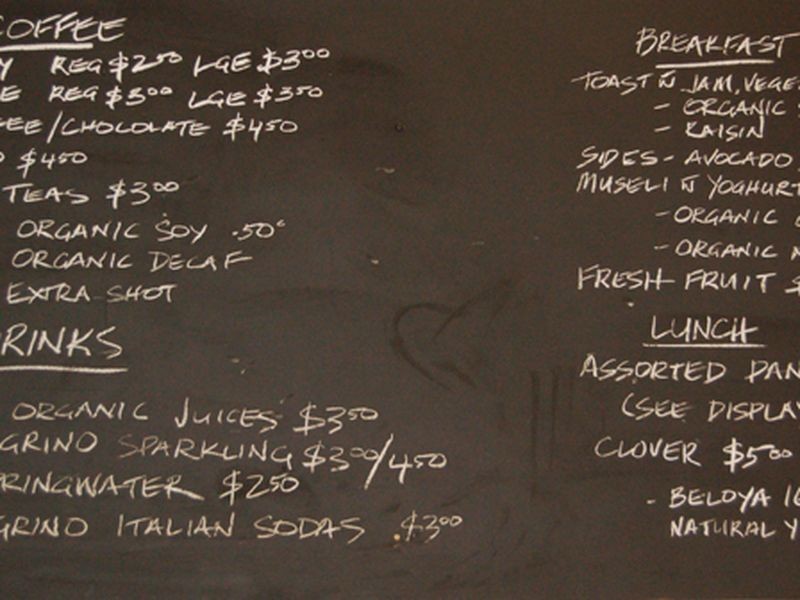 COFFEE
Y REG $2.50 LGE $3.00
E REG $3.00 LGE $3.50
FEE/CHOCOLATE $4.50
O $4.50
TEAS $3.00
ORGANIC SOY .50¢
ORGANIC DECAF
EXTRA SHOT
RINKS
ORGANIC JUICES $3.50
GRINO SPARKLING $3.00/4.50
RINGWATER $2.50
GRINO ITALIAN SODAS $3.00
BREAKFAST
TOAST N JAM, VEGE
- ORGANIC
- RAISIN
SIDES - AVOCADO
MUSELI N YOGHURT
- ORGANIC
- ORGANIC
FRESH FRUIT $
LUNCH
ASSORTED PAN
(SEE DISPLAY
CLOVER $5.00
- BELOYA
NATURAL Y